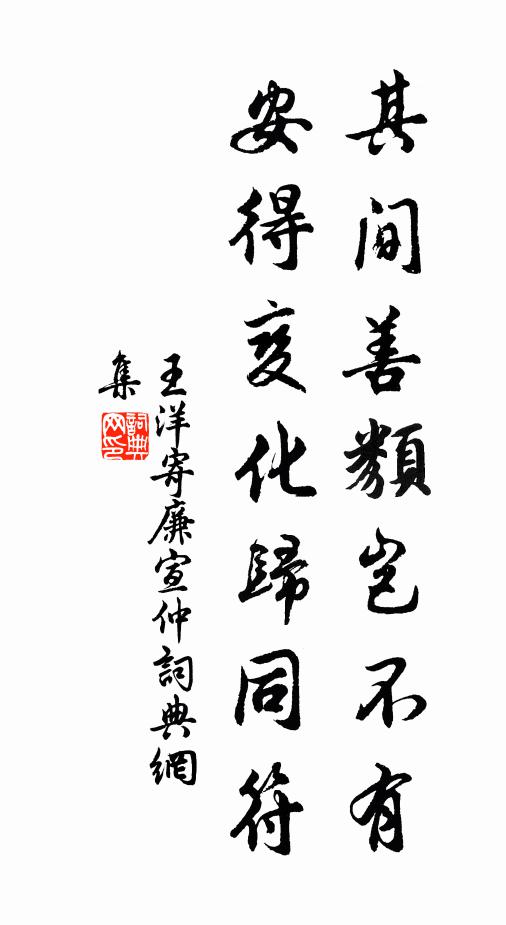 其間善類豈不有
安得变化歸同符
王洋寄廉宣仲詞典網
集
詞典
网印